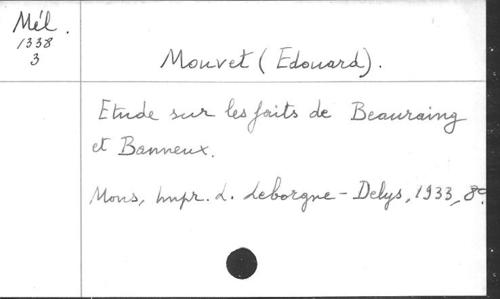 Mél.
1338
3
Mouvet (Edouard).
Etude sur les faits de Beauraing
et Banneux.
Mons, Impr. L. Leborgne-Delys, 1933, 8°.